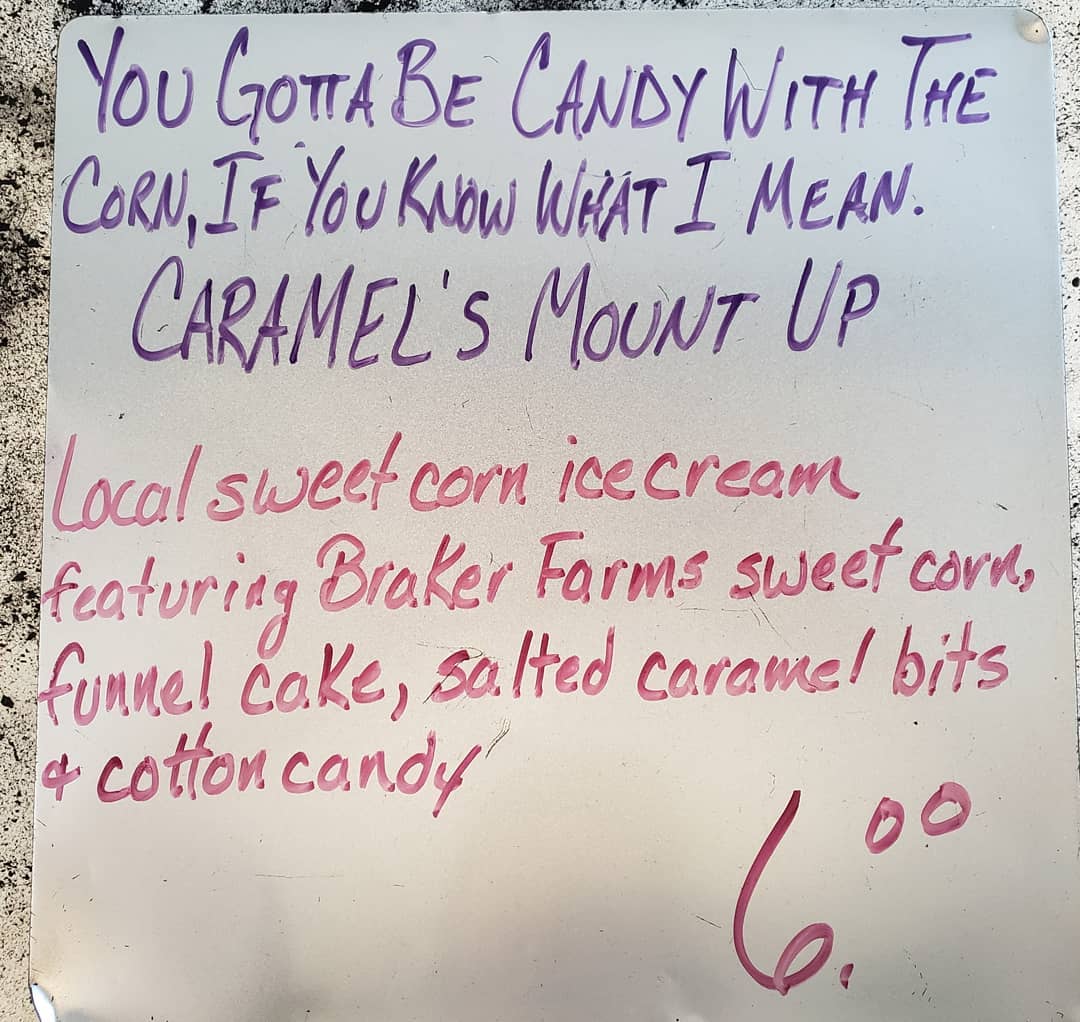 YOU GOTTA BE CANDY WITH THE
CORN, IF YOU KNOW WHAT I MEAN.
CARAMEL'S MOUNT UP
Local sweet corn ice cream
featuring Braker Farms sweet corn,
funnel cake, salted caramel bits
& cotton candy
6.00